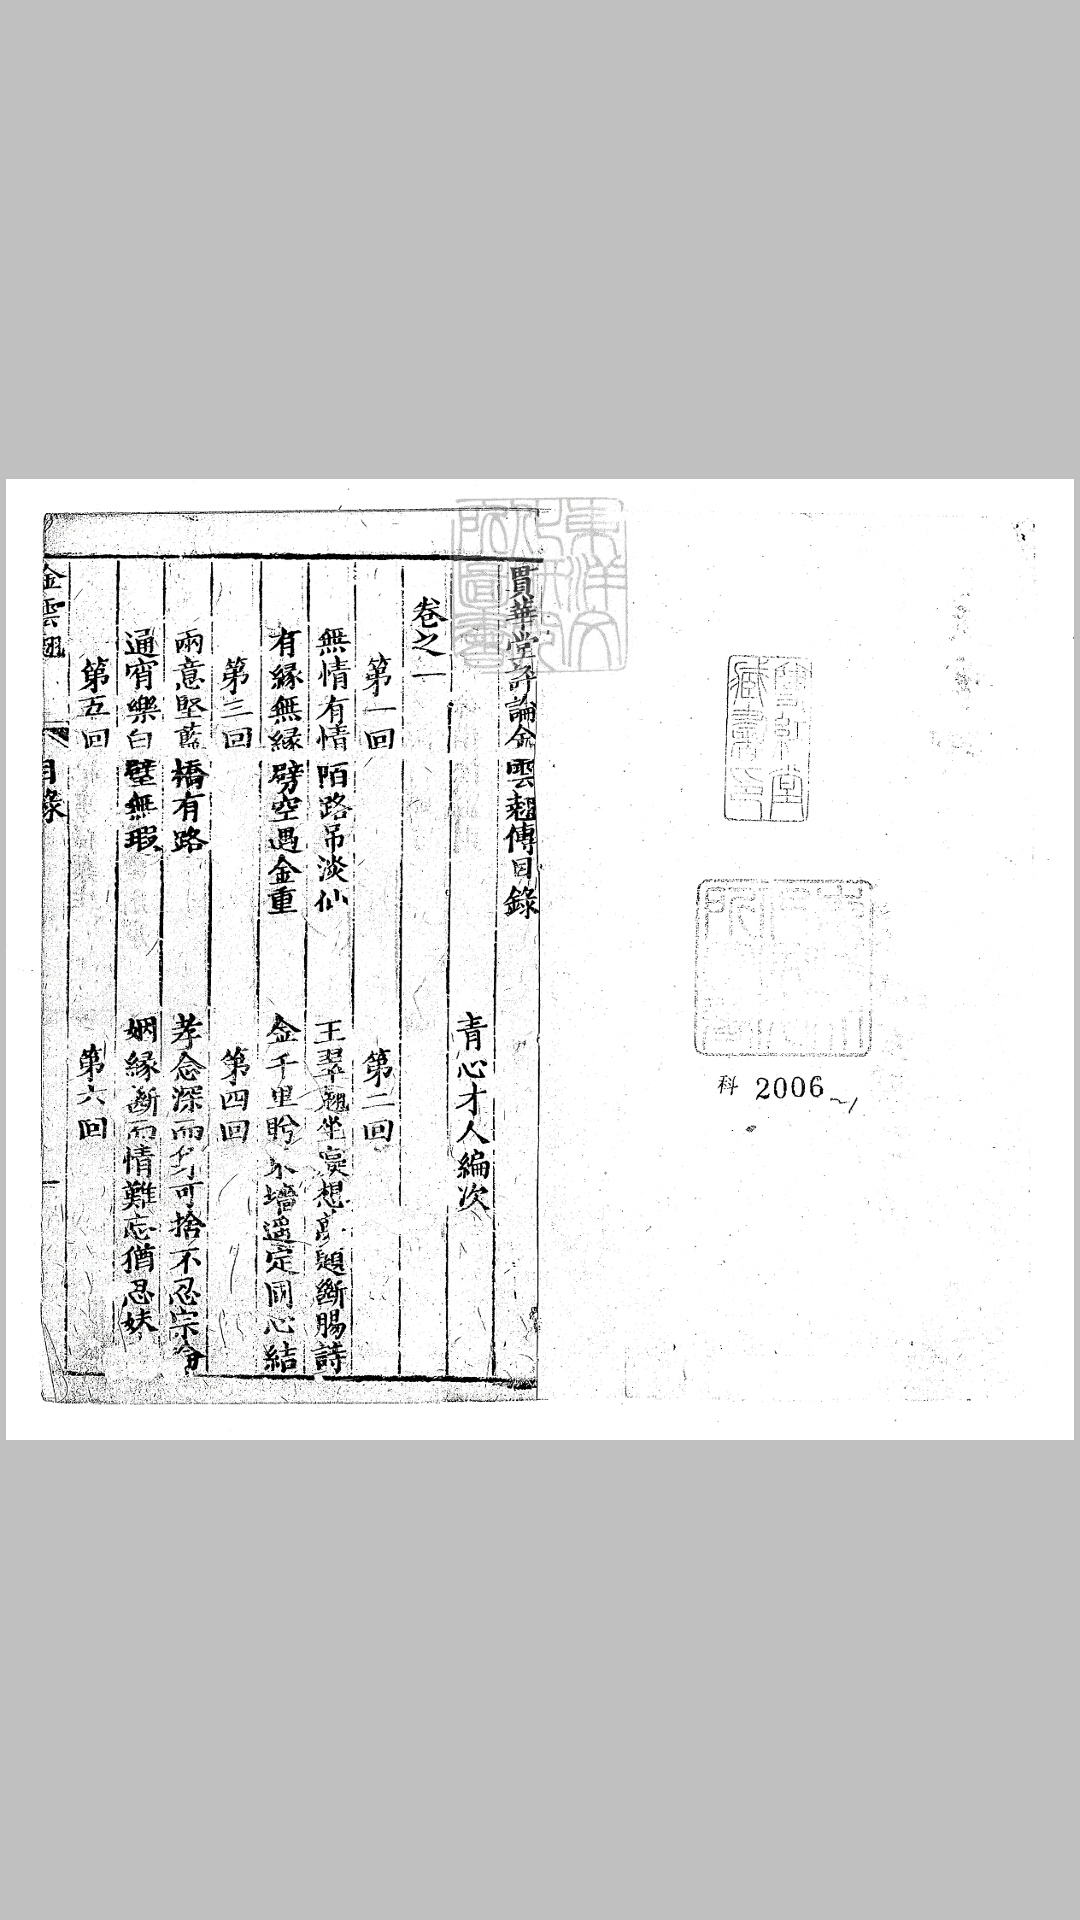 雙紅堂
藏書印
科 2006~1
東洋文
化研究
所圖書
貫華堂評論金雲翹傳目錄
青心才人編次
卷之一
第一回
第二回
無情有情陌路吊淡仙
王翠翹坐想題斷腸詩
有緣無緣劈空遇金重
金千里盻墻遥定同心結
第三回
第四回
兩意堅藍橋有路
孝念深而可捨不忍宗
通宵樂白璧無瑕
姻緣斷而情難忘猶忍妹
第五回
第六回
金雲翹
目錄